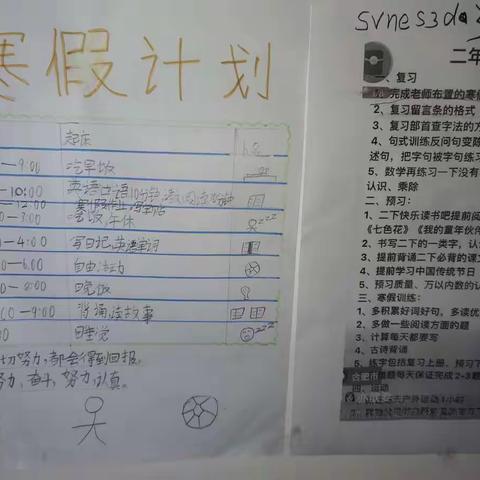 寒假计划
起床
—9:00 吃早饭
—10:00 英语口语10分钟
—12:00 寒假作业
0—3:00 午休
0—4:00 写日记,英语单词
0—6:00 自由活动
0—8:00 晚饭
00—9:00 背诵,读故事
00 睡觉
切努力,都会得到回报,
努力,奋斗,努力,认真。
svnes3da
二年
一、复习
1、完成老师布置的寒假
2、复习留言条的格式
3、复习部首查字法的方
4、句式训练反问句变陈
述句,把字句被字句练习
5、数学再练习一下没有
认识、乘除
二、预习:
1、二下快乐读书吧提前阅
《七色花》《我的童年伙伴
2、书写二下的一类字,认
3、提前背诵二下必背的课文
4、提前学习中国传统节日
5、预习质量、万以内数的认
三、寒假训练:
1、多积累好词好句,多读优
2、多做一些阅读方面的题
3、计算每天都要写
4、古诗背诵
5、练字包括复习上册、预习下
每天保证完成2-3题
合肥市
四、运动